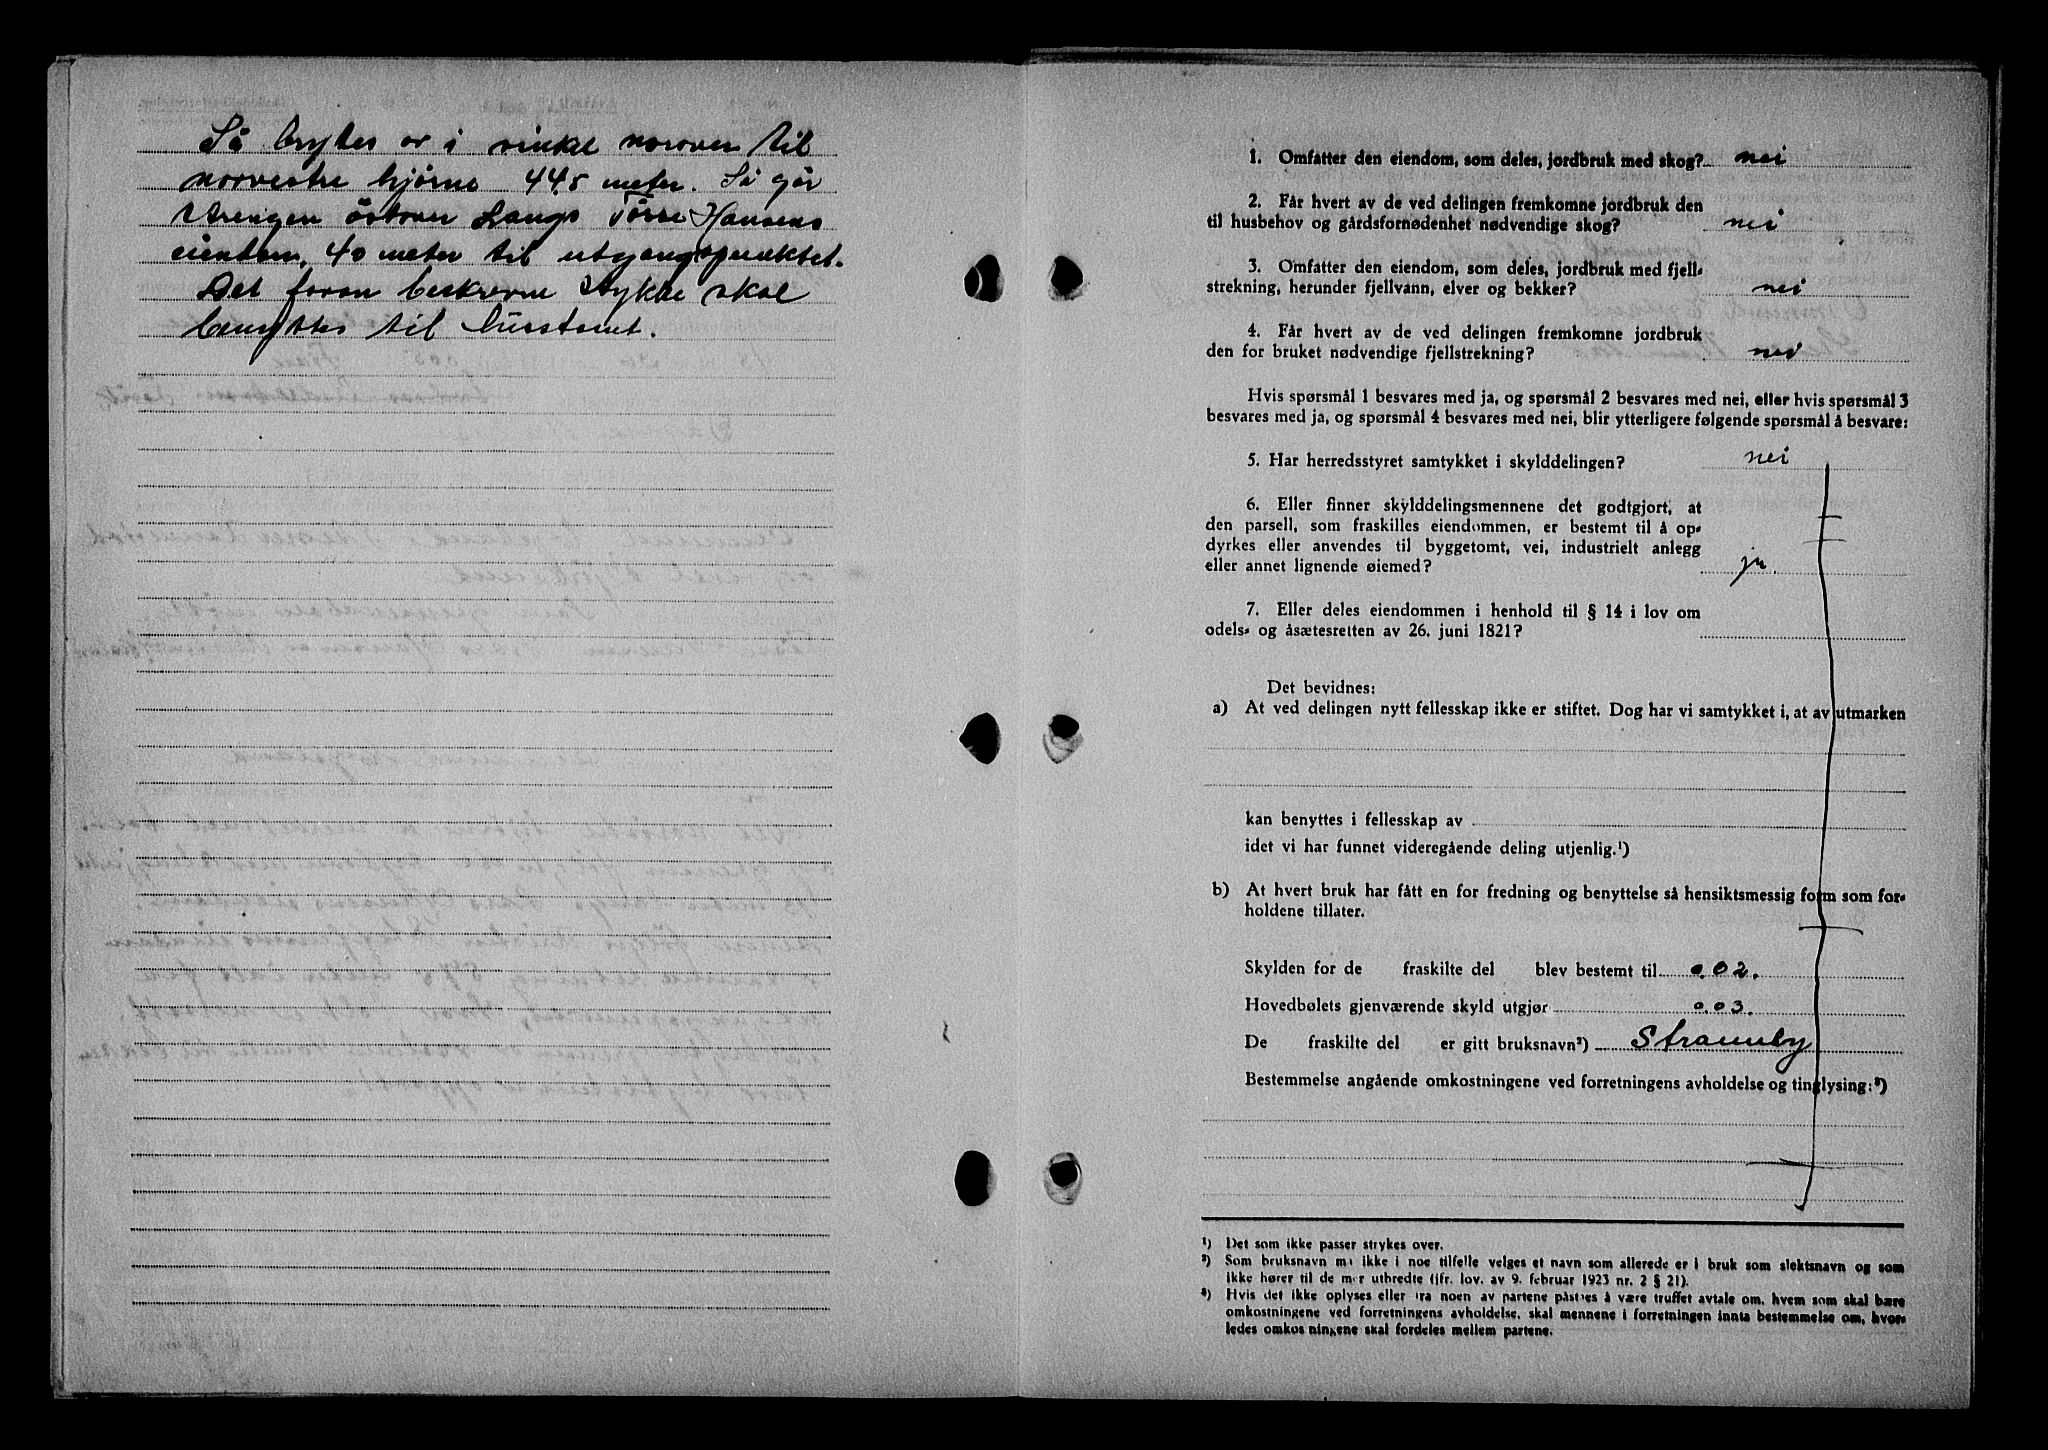 Så brytes or i vinkel norover til
norvestre hjørne 44,5 meter. Så går
strengen östover langs Törre Hansens
eiendom, 40 meter til utgangspunktet.
Det foran beskrevne stykke skal
benyttes til hustomt.
1. Omfatter den eiendom, som deles, jordbruk med skog? nei
2. Får hvert av de ved delingen fremkomne jordbruk den
til husbehov og gårdsfornødenhet nødvendige skog? nei
3. Omfatter den eiendom, som deles, jordbruk med fjell-
strekning, herunder fjellvann, elver og bekker? nei
4. Får hvert av de ved delingen fremkomne jordbruk
den for bruket nødvendige fjellstrekning? nei
Hvis spørsmål 1 besvares med ja, og spørsmål 2 besvares med nei, eller hvis spørsmål 3
besvares med ja, og spørsmål 4 besvares med nei, blir ytterligere følgende spørsmål å besvare:
5. Har herredsstyret samtykket i skylddelingen? nei
6. Eller finner skylddelingsmennene det godtgjort, at
den parsell, som fraskilles eiendommen, er bestemt til å op-
dyrkes eller anvendes til byggetomt, vei, industrielt anlegg
eller annet lignende øiemed? ja.
7. Eller deles eiendommen i henhold til § 14 i lov om
odels- og åsætesretten av 26. juni 1821?
Det bevidnes:
a) At ved delingen nytt fellesskap ikke er stiftet. Dog har vi samtykket i, at av utmarken
kan benyttes i fellesskap av
idet vi har funnet videregående deling utjenlig.¹)
b) At hvert bruk har fått en for fredning og benyttelse så hensiktsmessig form som for-
holdene tillater.
Skylden for de fraskilte del blev bestemt til 0.02.
Hovedbølets gjenværende skyld utgjør 0.03.
De fraskilte del er gitt bruksnavn²) Strannby
Bestemmelse angående omkostningene ved forretningens avholdelse og tinglysing:³)
¹) Det som ikke passer strykes over.
²) Som bruksnavn må ikke i noe tilfelle velges et navn som allerede er i bruk som slektsnavn og som
ikke hører til de mer utbredte (jfr. lov. av 9. februar 1923 nr. 2 § 21).
³) Hvis det ikke oplyses eller fra noen av partene påstnes å være truffet avtale om, hvem som skal bære
omkostningene ved forretningens avholdelse, skal mennene i forretningen innta bestemmelse om, hvor-
ledes omkostningene skal fordeles mellem partene.